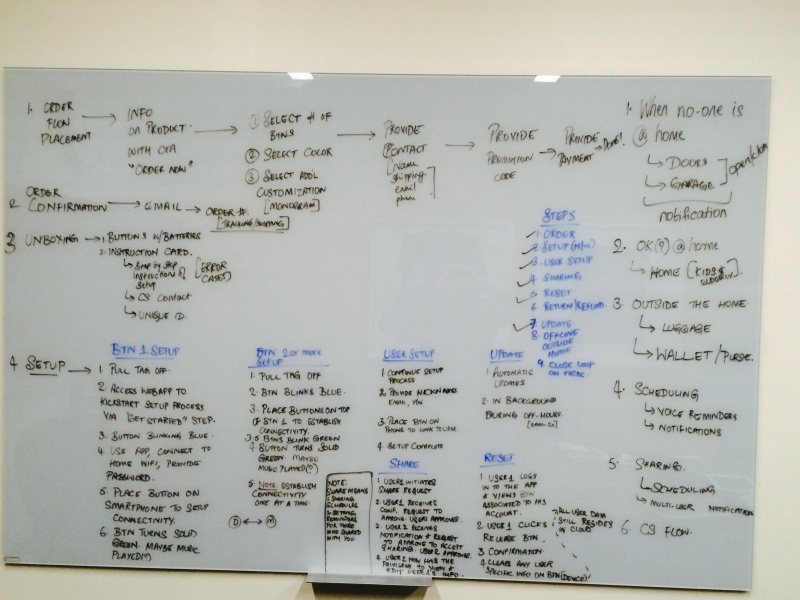 1. ORDER
FLOW
PLACEMENT
INFO
ON PRODUCT
WITH CTA
"ORDER NOW"
① SELECT # OF
BTNS
② SELECT COLOR
③ SELECT ADDL
CUSTOMIZATION
[MONOGRAM]
PROVIDE
CONTACT
Name
shipping
email
phone
PROVIDE
PROMOTION
CODE
PROVIDE
PAYMENT
Done!
2 ORDER
CONFIRMATION
EMAIL
ORDER #.
[TRACKING/SHIPPING]
3 UNBOXING
1. BUTTONS W/BATTERIES
2. INSTRUCTION CARD.
Step by Step
instructions of
Setup
[ERROR
CASES]
CS Contact
UNIQUE ID.
STEPS
1 ORDER
2 SETUP
3 USER SETUP
4 SHARING
5 RESET
6 RETURN/REFUND
7 UPDATE
8 OFFLINE
OUTSIDE
HOME
9. CLOSE LOOP
ON
1. When no-one is
@ home
DOORS
GARAGE
open/close
notification
2. OK(?) @ home
HOME [KIDS &
ELDERLY].
3. OUTSIDE THE HOME.
LUGGAGE
WALLET/PURSE.
4. SCHEDULING
VOICE REMINDERS
NOTIFICATIONS
5. SHARING.
SCHEDULING
MULTI-USER NOTIFICATION
6. CS FLOW.
4 SETUP
BTN 1 SETUP
1. PULL TAG OFF.
2. ACCESS WEBAPP TO
KICKSTART SETUP PROCESS
VIA "GET STARTED" STEP.
3. BUTTON BLINKING BLUE.
4. USE APP, CONNECT TO
HOME WIFI, PROVIDE
PASSWORD.
5. PLACE BUTTON ON
SMARTPHONE TO SETUP
CONNECTIVITY.
6. BTN TURNS SOLID
GREEN. MAYBE MUSIC
PLAYED(?)
BTN 2 or more
SETUP
1. PULL TAG OFF
2. BTN BLINKS BLUE.
3. PLACE BUTTONS ON TOP
OF BTN 1 TO ESTABLISH
CONNECTIVITY.
3.5 BTNS BLINK GREEN
4 BUTTON TURNS SOLID
GREEN. MAYBE
MUSIC PLAYED(?)
5. NOTE: ESTABLISH
CONNECTIVITY
ONE AT A TIME.
NOTE:
SHARE MEANS
SHARING
SCHEDULE
& SETTING
REMINDERS
FOR THOSE
WHO SHARED
WITH YOU.
USER SETUP
1. CONTINUE SETUP
PROCESS
2. PROVIDE NICKNAME
EMAIL,
3. PLACE BTN ON
PHONE TO LINK TO USER.
4. SETUP COMPLETE
SHARE
1. USER1 INITIATES
SHARE REQUEST
2. USER1 RECEIVES
CONF. REQUEST TO
APPROVE. USER1 APPROVES.
3. USER 2 RECEIVES
NOTIFICATION & REQUEST
TO APPROVE TO ACCEPT
SHARING. USER2 APPROVES.
4. USER2 NOW HAS THE
PRIVILEGE TO VIEW &
EDIT USER1'S INFO.
UPDATE
1. AUTOMATIC
UPDATES
2. IN BACKGROUND
DURING OFF-HOURS.
RESET
1. USER1 LOGS
IN TO THE APP
& VIEWS BTN
ASSOCIATED TO HIS
ACCOUNT.
2. USER1 CLICKS
RELEASE BTN.
3. CONFIRMATION.
4. CLEARS ANY USER
SPECIFIC INFO ON BTN (DEVICE)
ALL USER DATA
STILL RESIDES
IN CLOUD